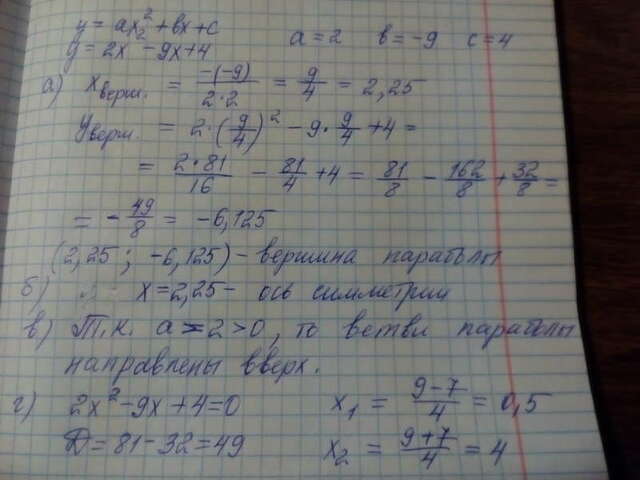 y = ax² + bx + c
y = 2x² - 9x + 4    a = 2    b = -9    c = 4
а) x верш. = -(-9)/2·2 = 9/4 = 2,25
y верш. = 2·(9/4)² - 9·9/4 + 4 =
= 2·81/16 - 81/4 + 4 = 81/8 - 162/8 + 32/8 =
= -49/8 = -6,125
(2,25 ; -6,125) - вершина параболы
б) x = 2,25 - ось симметрии
в) Т.к. a = 2 > 0, то ветви параболы
направлены вверх.
г) 2x² - 9x + 4 = 0    x₁ = 9-7/4 = 0,5
D = 81 - 32 = 49    x₂ = 9+7/4 = 4